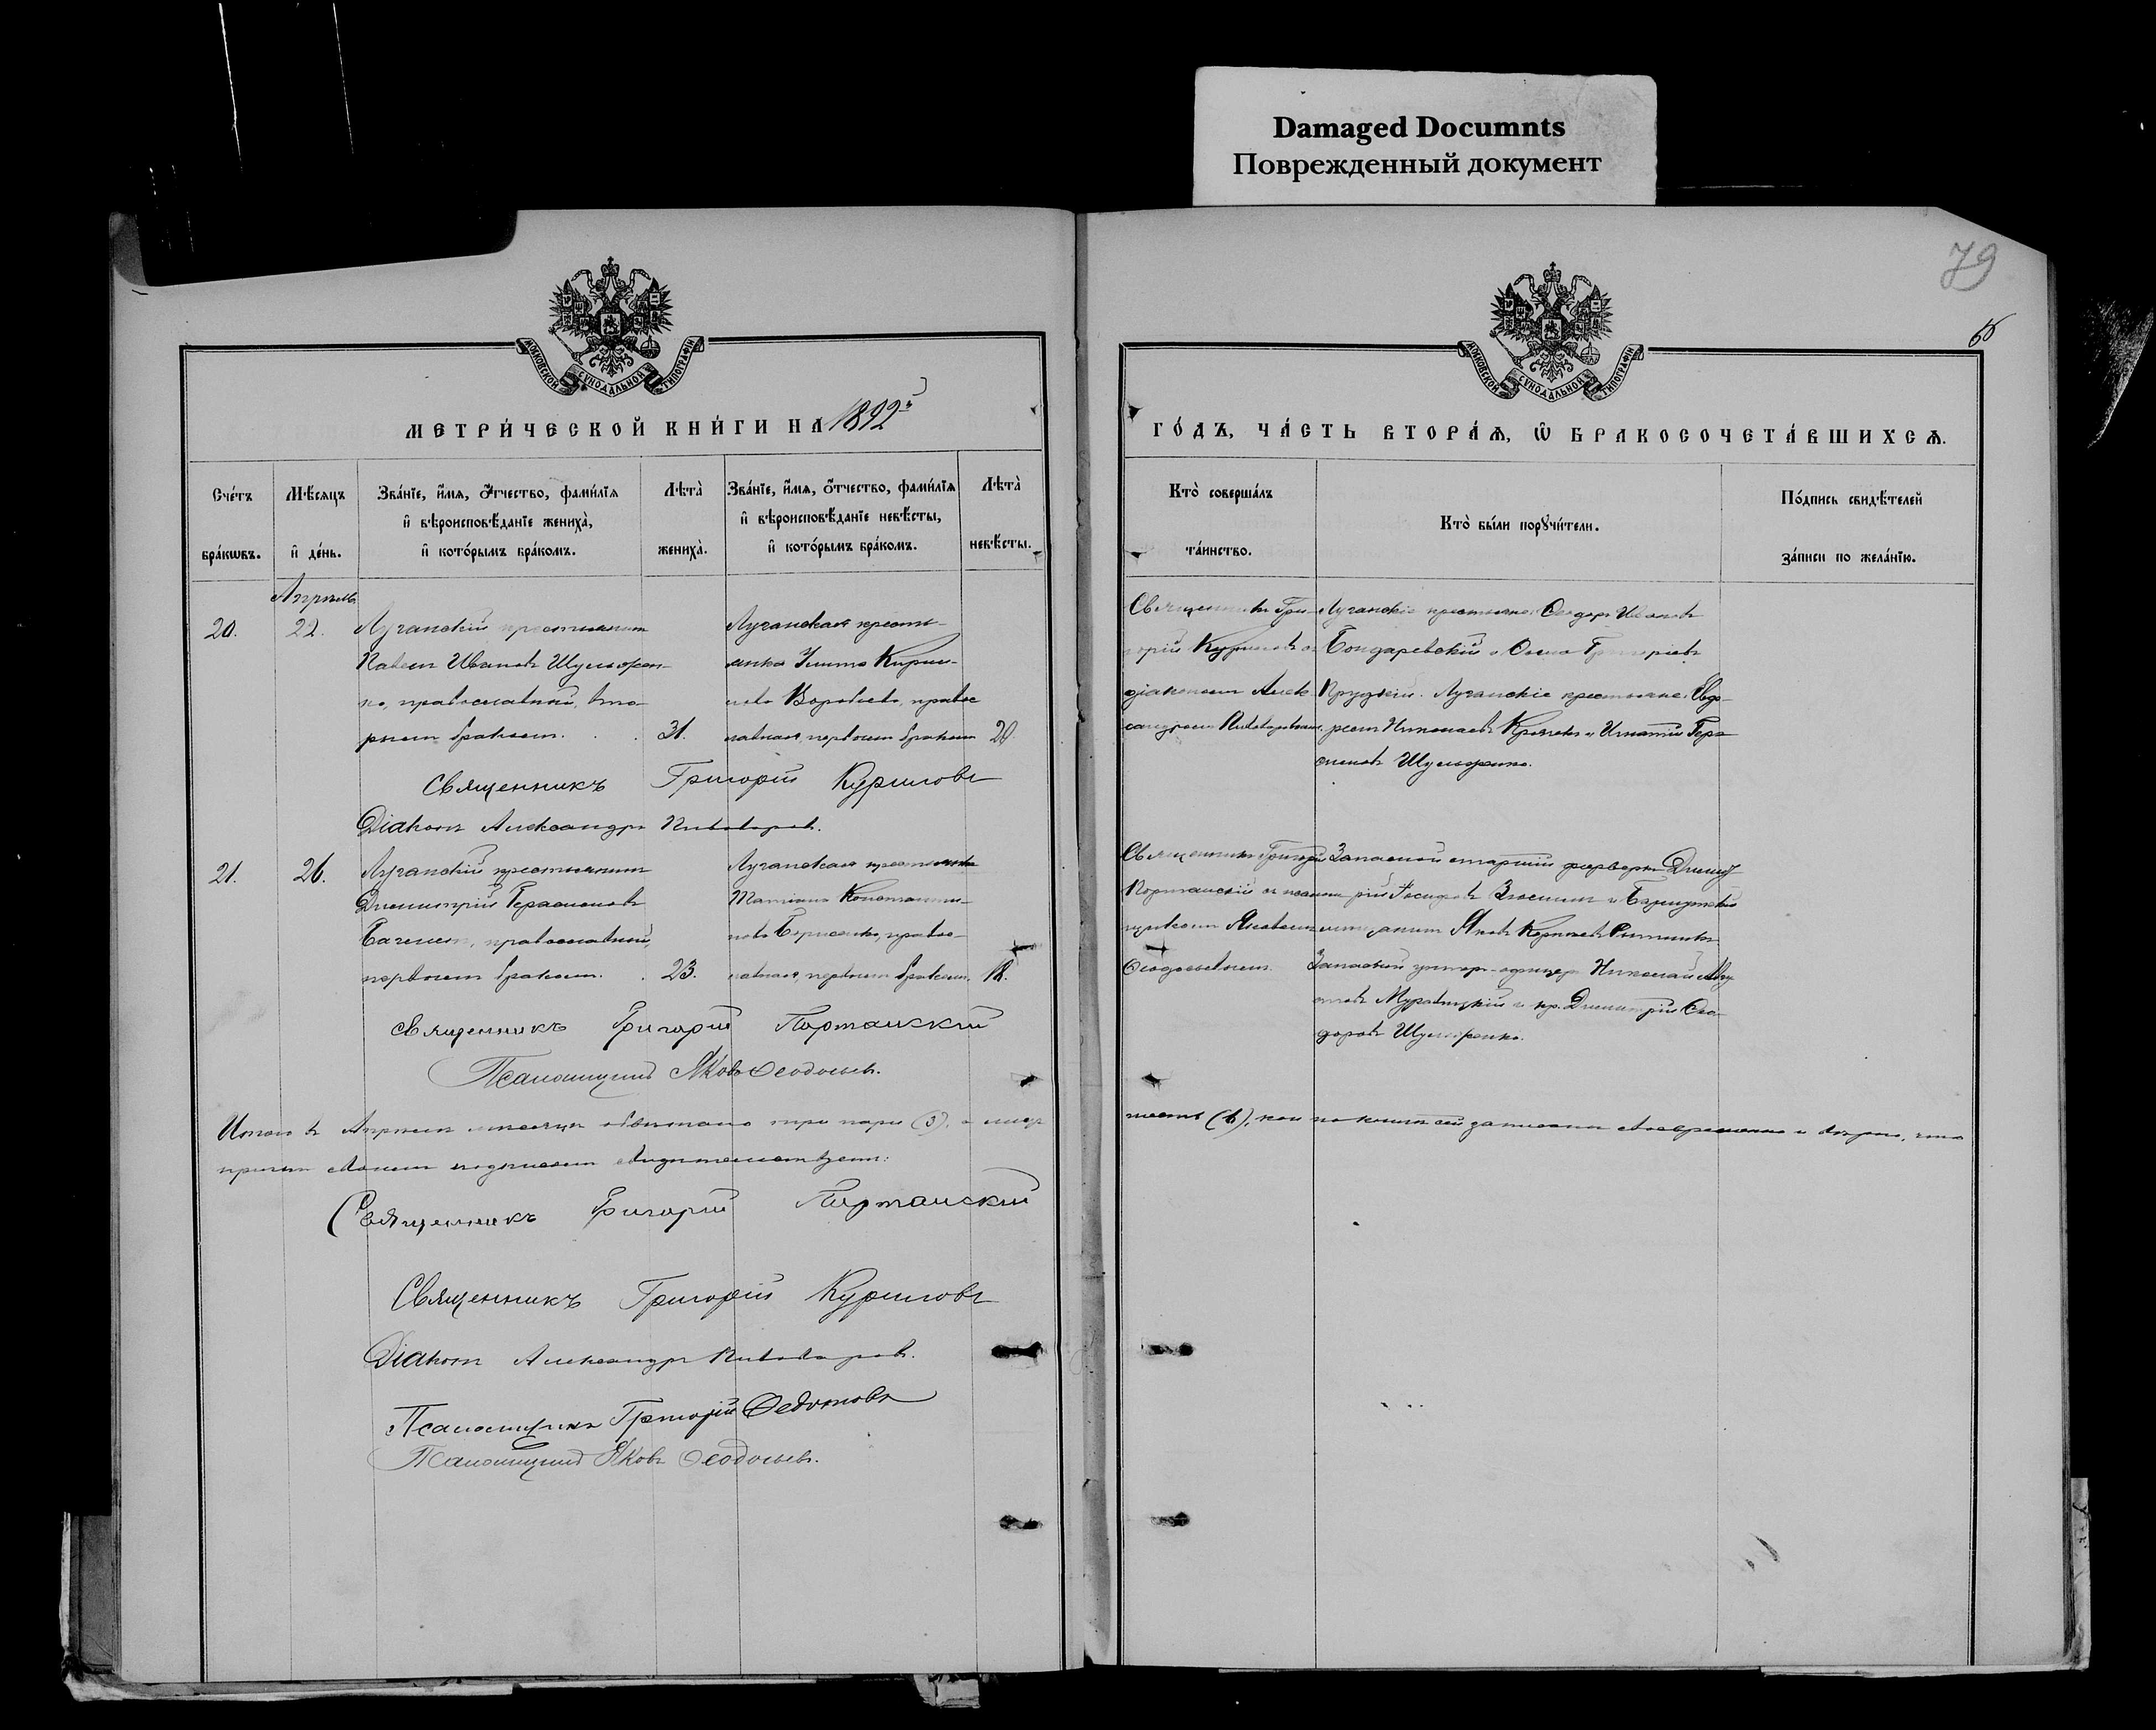 Damaged Documnts
Поврежденный документ
79
66
МОСКОВСКОЙ СѴНОДАЛЬНОЙ ТИПОГРАФІИ
МОСКОВСКОЙ СѴНОДАЛЬНОЙ ТИПОГРАФІИ
МЕТРИ́ЧЕСКОЙ КНИ́ГИ НА 1892й
ГО́ДЪ, ЧА́СТЬ ВТОРА́Ѧ, Ѡ҆ БРАКОСОЧЕТА́ВШИХСѦ.
Сче́тъ бра́кѡвъ.
Мѣ́сяцъ и҆ де́нь.
Зва́нїе, и҆́мѧ, ѻ҆́тчество, фами́лїѧ и҆ вѣроисповѣ́данїе жениха̀, и҆ кото́рымъ бра́комъ.
Лѣта̀ жениха̀.
Зва́нїе, и҆́мѧ, ѻ҆́тчество, фами́лїѧ и҆ вѣроисповѣ́данїе невѣ́сты, и҆ кото́рымъ бра́комъ.
Лѣта̀ невѣ́сты.
Кто̀ соверша́лъ та́инство.
Кто̀ бы́ли порꙋчи́тели.
По́дпись свидѣ́телей за́писи по жела́нїю.
Апрѣль
20.
22.
Луганскій крестьянинъ
Павелъ Ивановъ Шульжен-
ко, православный, вто-
рымъ бракомъ.
31.
Луганская кресть-
янка Улита Кирил-
лова Воробьева, правос
лавная, первымъ бракомъ
20
Священникъ Гри-
горій Куриловъ съ
діакономъ Алек-
сандромъ Пивоваровымъ.
Луганскіе крестьяне: Ѳеодоръ Ивановъ
Бондаревскій и Григоріевъ
Луганскіе крестьяне:
Николаевъ и Игнатій Гера
симовъ Шульженко.
Священникъ Григорій Куриловъ
Діаконъ Александръ Пивоваровъ.
21.
26.
Луганскій крестьянинъ
Димитрій Герасимовъ
православный,
первымъ бракомъ.
23.
Луганская крестьянка
Татіана Константи-
нова Борисенко, правос-
лавная, первымъ бракомъ.
18.
Священникъ Григорій
Порталскій съ псалом
щикомъ Яковомъ
Ѳеодосьевымъ.
Запасной старшій фейерверк. Димит
рій Іосифовъ и Бахмутскій
мѣщанинъ Яковъ
Запасный унтер-офицеръ Николай
Муравицкій и кр. Димитрій Ѳео-
доровъ Шульженко.
Священникъ Григорій Порталскій
Псаломщикъ Яковъ Ѳеодосьевъ.
Итого въ Апрѣлѣ мѣсяцѣ обвѣнчано три пары (3), а лицъ
шесть (6), кои по книгѣ сей записаны своевременно и вѣрно, что
причтъ своимъ подписомъ свидѣтельствуетъ:
Священникъ Григорій Порталскій
Священникъ Григорій Куриловъ
Діаконъ Александръ Пивоваровъ.
Псаломщикъ Григорій Ѳедотовъ
Псаломщикъ Яковъ Ѳеодосьевъ.